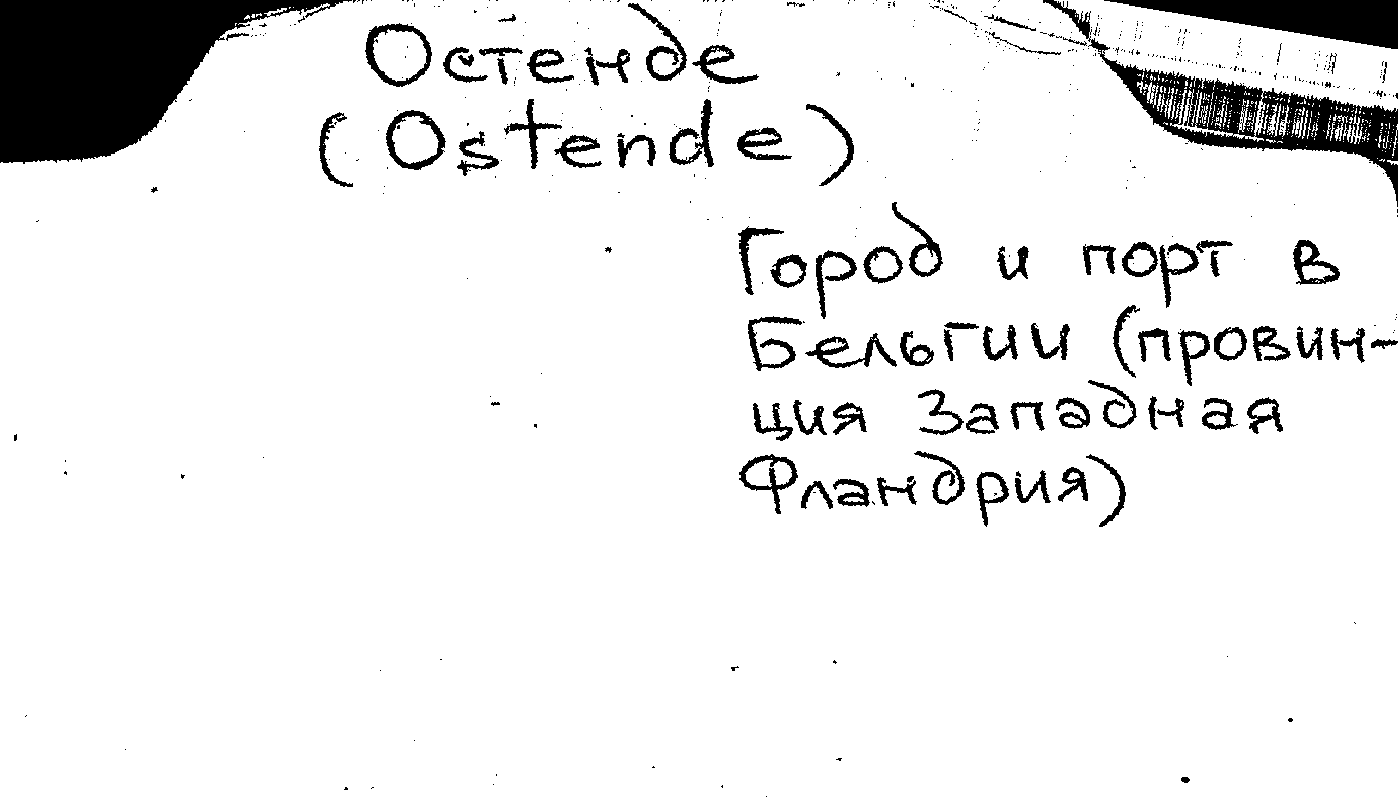 Остенде
(Ostende)
Город и порт в
Бельгии (провин-
ция Западная
Фландрия)